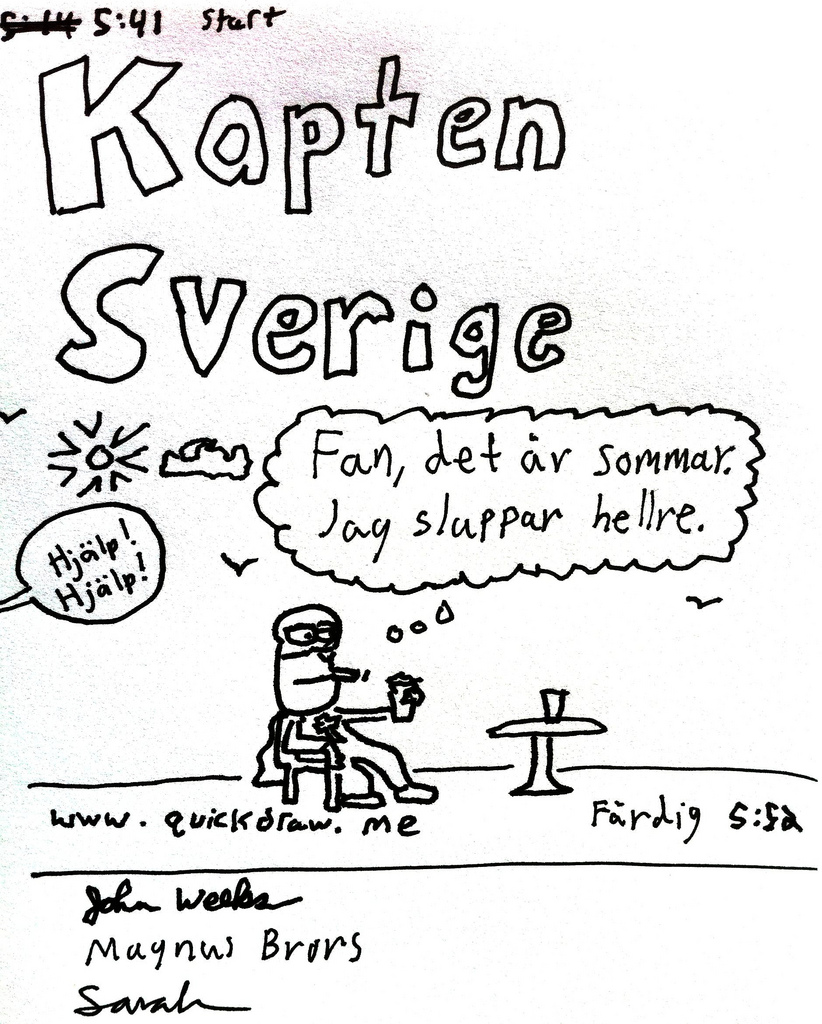 5:14 5:41 start
Kapten
Sverige
Fan, det är sommar.
Jag sluppar hellre.
Hjälp!
Hjälp!
www.quickdraw.me
Färdig 5:52
John Weeks
Magnus Brors
Sarah